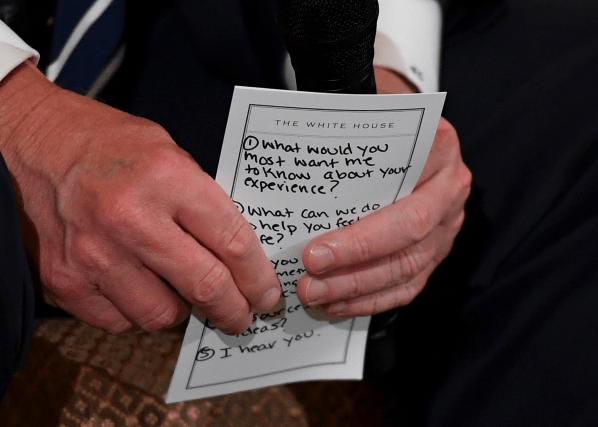 THE WHITE HOUSE
① What would you
most want me
to know about your
experience?
② What can we do
help you
?
you
ideas?
⑤ I hear you.